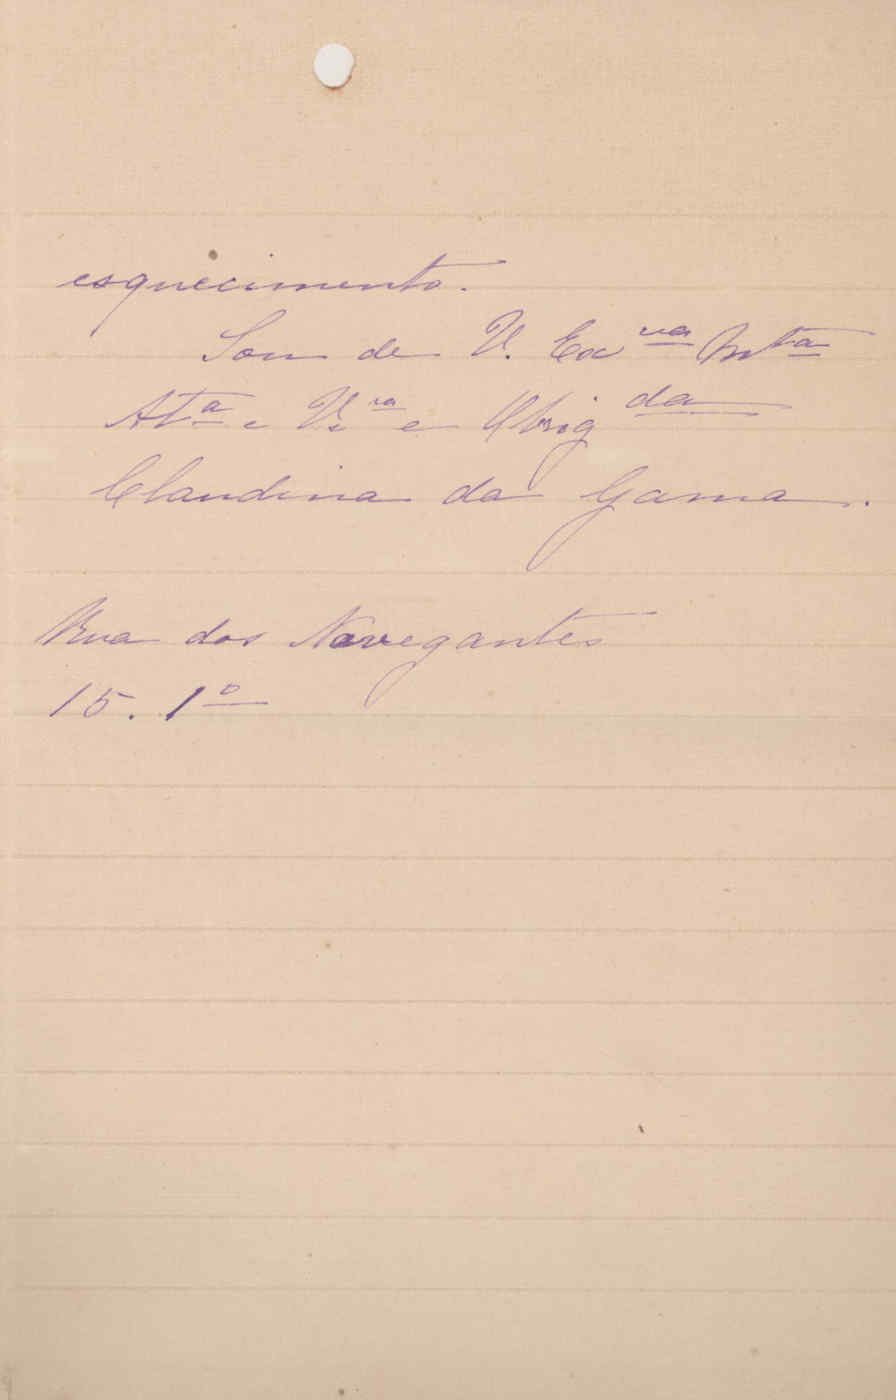 esquecimento.
Sou de V. Exᵐᵃ Mᵗᵃ
Atᵃ e Vʳᵃ e Obrigᵈᵃ
Claudina da Gama.
Rua dos Navegantes
15. 1º